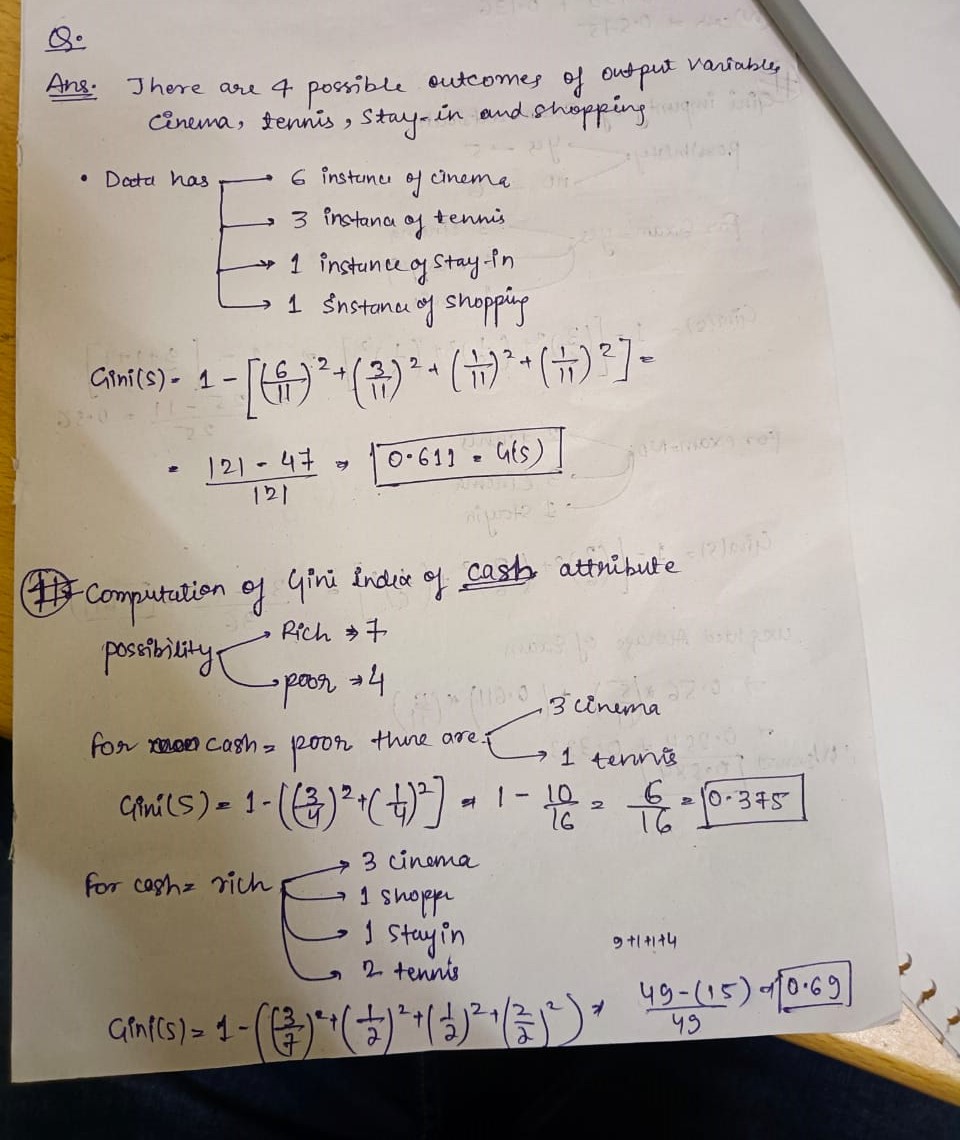 Q.
Ans. There are 4 possible outcomes of output variable,
Cinema, tennis, Stay-in and shopping
• Data has → 6 instance of cinema
→ 3 instance of tennis
→ 1 instance of Stay-in
→ 1 instance of shopping
Gini(S) = 1 - [(6/11)² + (3/11)² + (1/11)² + (1/11)²] =
= 121 - 47 / 121 ⇒ 0.611 = G(S)
Computation of Gini index of cash attribute
possibility → Rich → 7
→ poor → 4
for cash = poor there are → 3 cinema
→ 1 tennis
Gini(S) = 1 - ((3/4)² + (1/4)²] = 1 - 10/16 = 6/16 = 0.375
for cash = rich → 3 cinema
→ 1 shoppe
→ 1 Stayin
→ 2 tennis
9+1+1+4
Gini(S) = 1 - ((3/7)² + (1/2)² + (1/2)² + (2/2)²) ⇒ 49-(15) / 49 ⇒ 0.69